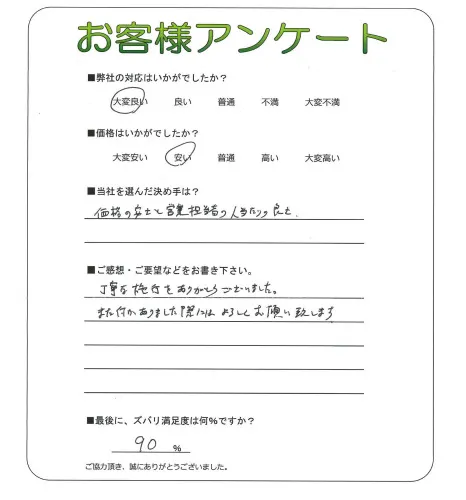 お客様アンケート
■弊社の対応はいかがでしたか？
大変良い 良い 普通 不満 大変不満
■価格はいかがでしたか？
大変安い 安い 普通 高い 大変高い
■当社を選んだ決め手は？
価格の安さと営業担当者の人当たりの良さ.
■ご感想・ご要望などをお書き下さい。
丁寧な施行をありがとうございました。
また何かありました際にはよろしくお願い致します
■最後に、ズバリ満足度は何%ですか？
90 %
ご協力頂き、誠にありがとうございました。